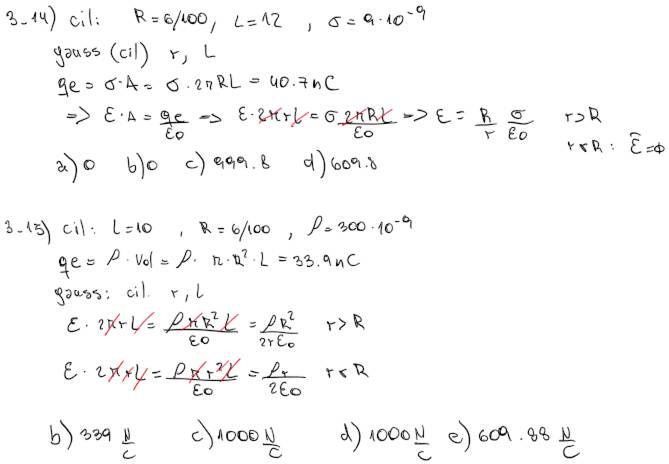 3-14) cil: R=6/100, L=12 , σ=9·10⁻⁹
gauss (cil) r, L
qe = σ·A = σ·2πRL = 40.7nC
=> E·A = qe/ε0 => E·2πrL = σ2πRL/ε0 => E = R/r σ/ε0 r>R
r<R: E̅=ϕ
a) 0 b) 0 c) 999.8 d) 609.8
3-15) cil: L=10 , R=6/100 , ρ=300·10⁻⁹
qe = ρ·Vol = ρ· π·R²·L = 33.9nC
gauss: cil. r, L
E· 2πrL = ρπR²L/ε0 = ρR²/2rε0 r>R
E· 2πrL = ρπr²L/ε0 = ρr/2ε0 r<R
b) 339 N/C c) 1000 N/C d) 1000 N/C e) 609.88 N/C